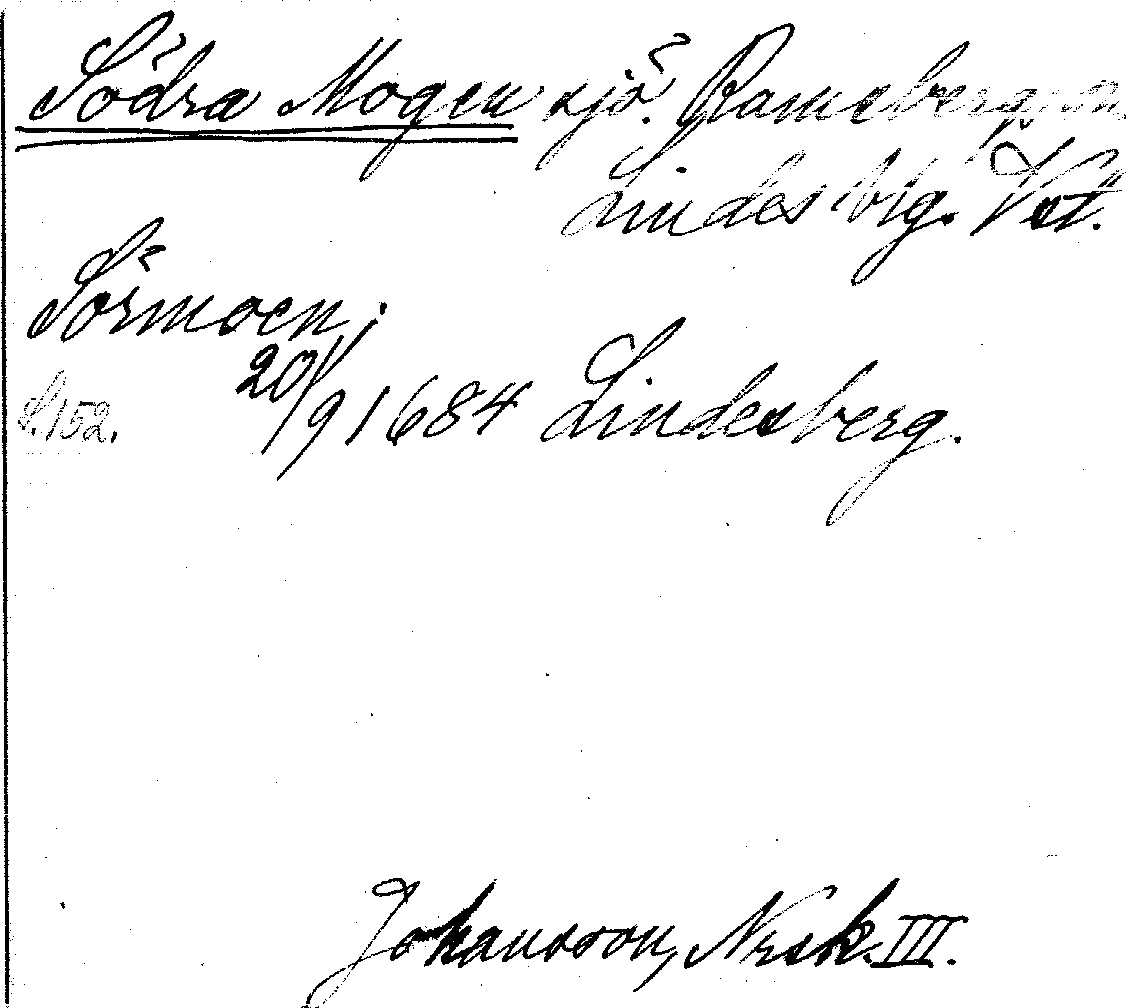 Södra Mogen sjö. Ramsbergs sn.
Lindes brg. Vst.
Sörmoen;
20/9 1684 Lindesberg.
S. 152.
Johansson, Nrsk. III.